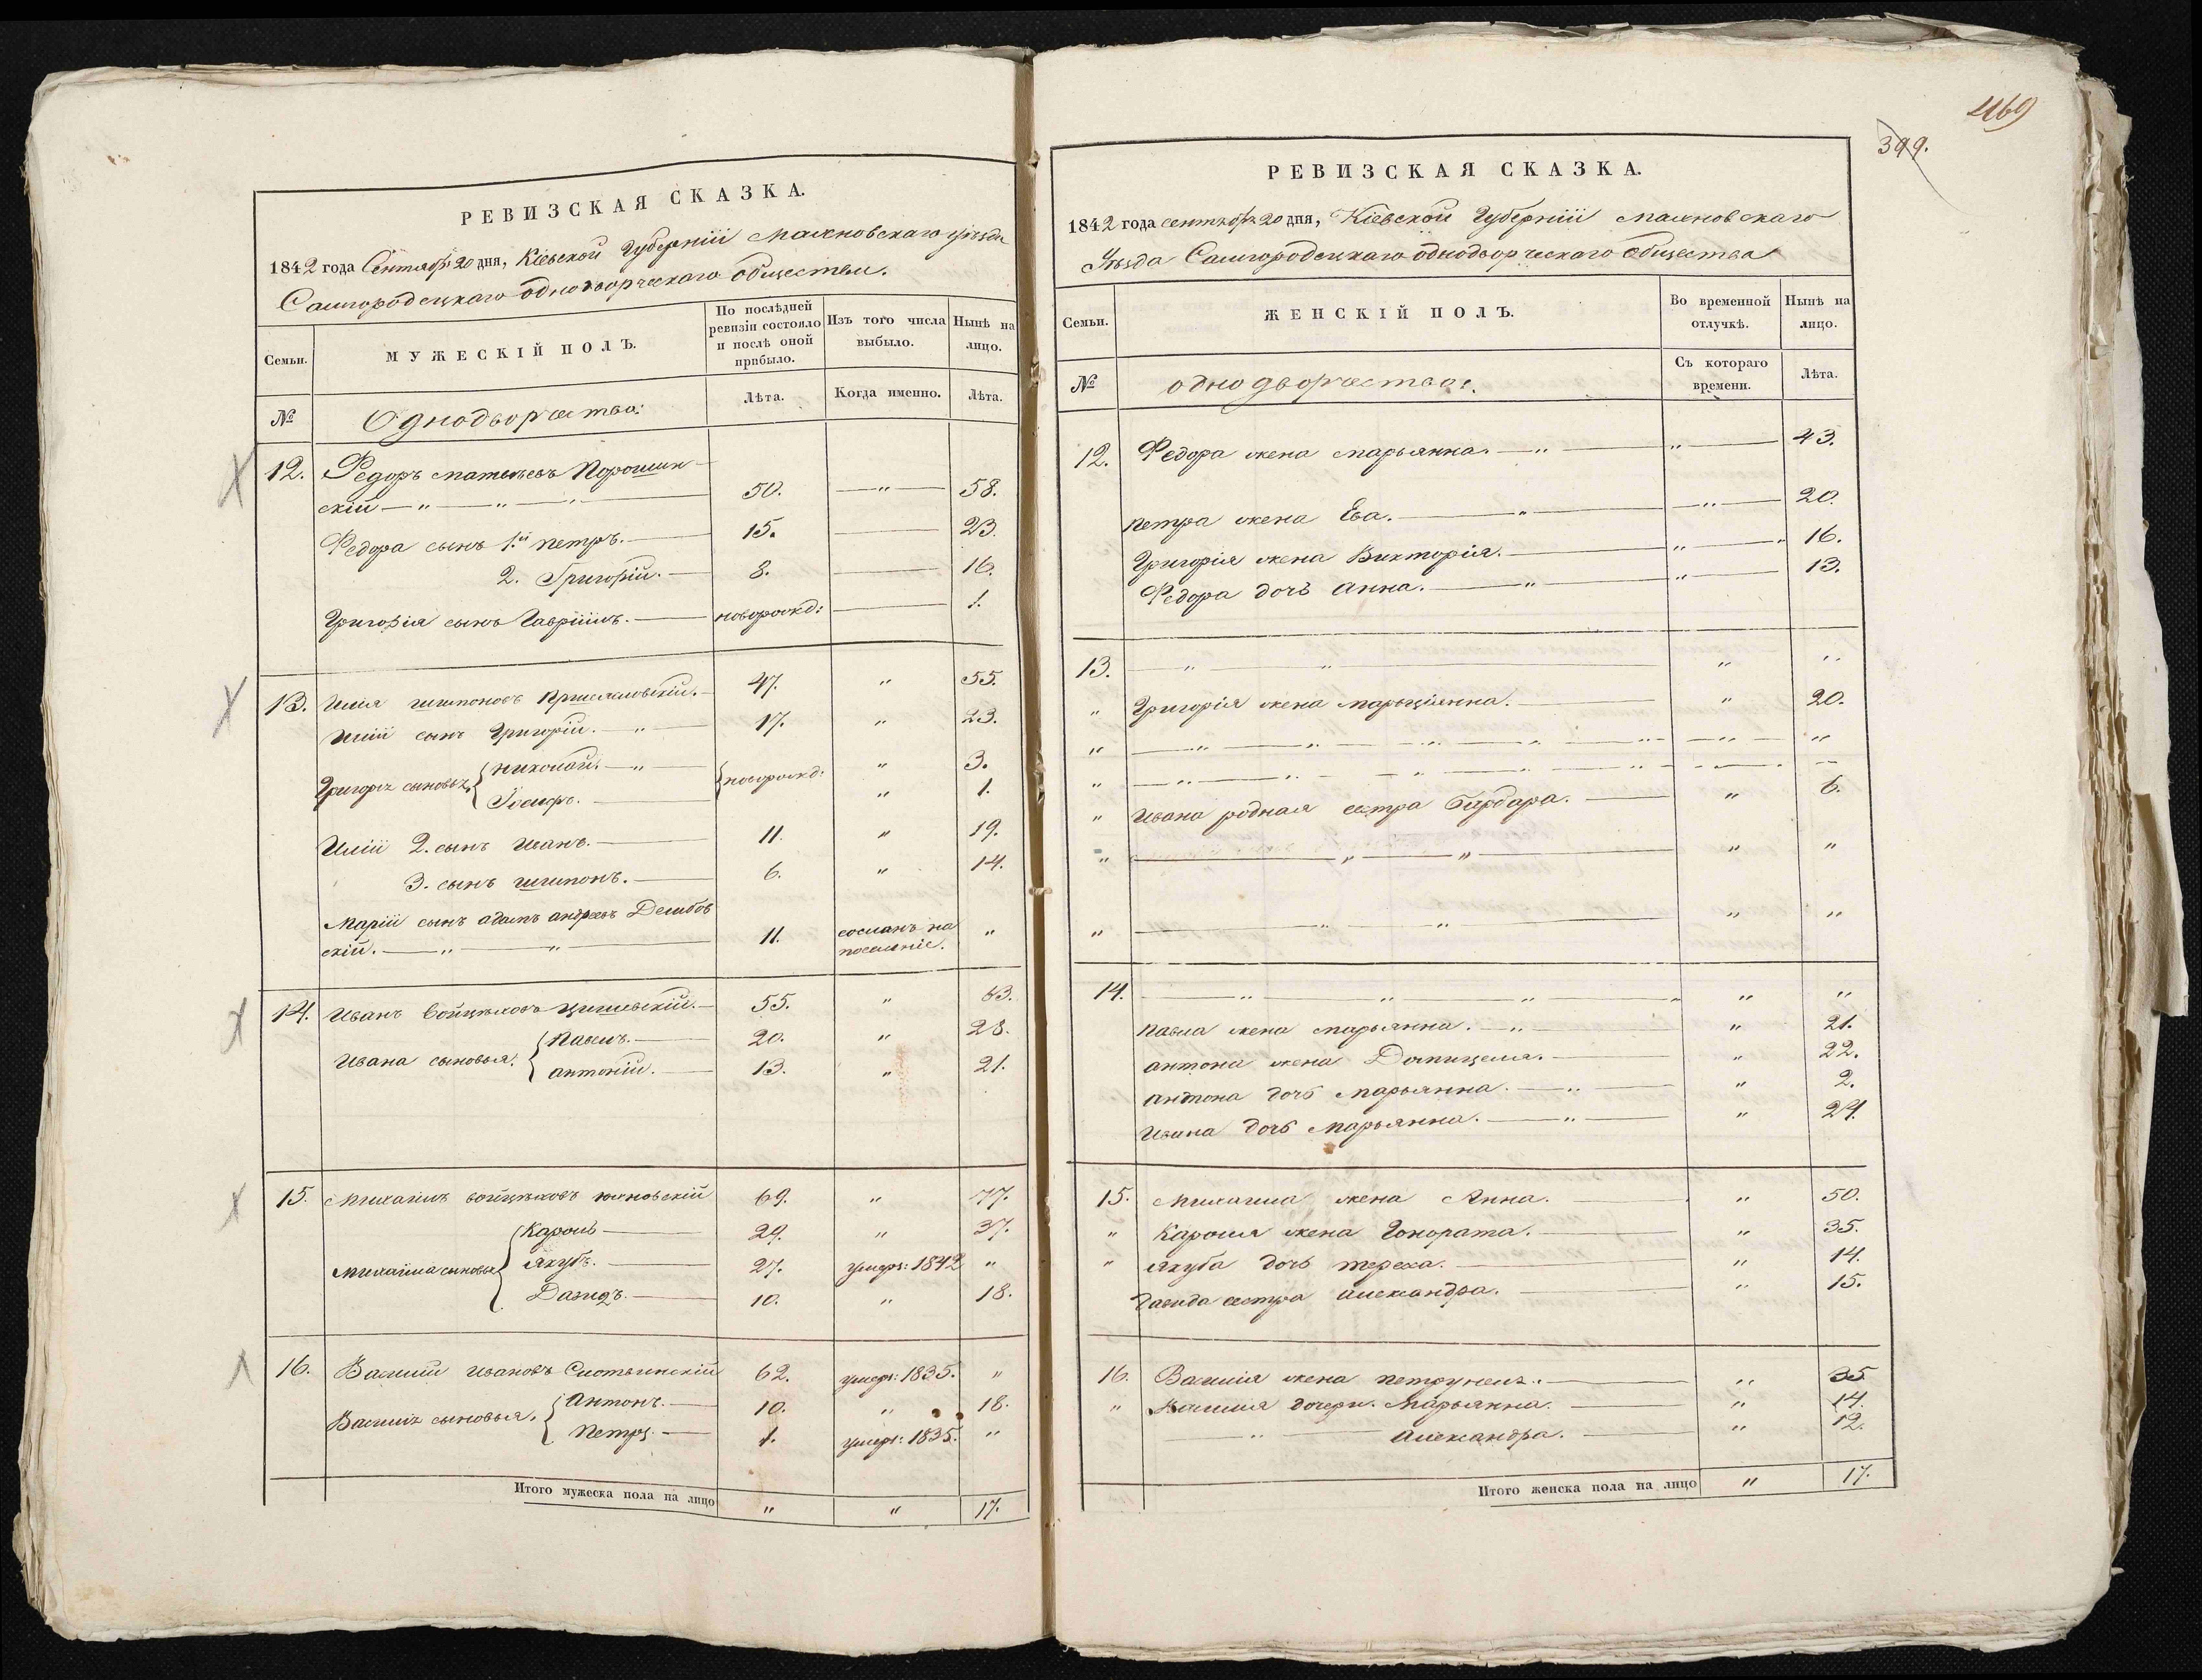 РЕВИЗСКАЯ СКАЗКА.
1842 года Сентября 20 дня, Кіевской Губерніи Махновскаго уѣзда
Самгородецкаго однодворческаго общества.
Семьи.
МУЖЕСКІЙ ПОЛЪ.
По послѣдней ревизіи состояло и послѣ оной прибыло.
Изъ того числа выбыло.
Нынѣ на лицо.
№
Однодворчества:
Лѣта.
Когда именно.
Лѣта.
12. Федоръ Матвѣевъ Порошин
скій — " — " — " — 50. — " — 58.
Федора сынъ 1й Петръ. — 15. — 23.
2. Григорій. — 8. — 16.
Григорія сынъ Гавріилъ. — новорожд: — 1.
13. Илія Шимоновъ — 47. " 55.
Иліи сынъ Григорій. — " — 17. " 23.
Григорія сыновья { Николай. — " — { новорожд: " 3.
Іосифъ. — " 1.
Иліи 2. сынъ Иванъ. — 11. " 19.
3. сынъ Шимонъ. — 6. " 14.
Маріи сынъ Адамъ Андреевъ Дембов
скій. — " — " — 11. сосланъ на "
поселеніе.
14. Иванъ Войцѣховъ Цишевскій. — 55. " 63.
Ивана сыновья. { Павелъ. — 20. " 28.
Антоній. — 13. " 21.
15. Михаилъ Войцѣховъ Юхновскій 69. " 77.
{ Кароль — 29. " 37.
Михаила сыновья Якубъ. — 27. умеръ: 1842 "
Давидъ. — 10. " 18.
16. Василій Ивановъ 62. умеръ: 1835. "
Василія сыновья. { Антонъ. — 10. " 18.
Петръ. — 1. умеръ: 1835. "
Итого мужеска пола на лицо " " 17.
469
399.
РЕВИЗСКАЯ СКАЗКА.
1842 года Сентября 20 дня, Кіевской Губерніи Махновскаго
Уѣзда Самгородецкаго однодворческаго общества
Семьи.
ЖЕНСКІЙ ПОЛЪ.
Во временной отлучкѣ.
Нынѣ на лицо.
№
однодворчества:
Съ котораго времени.
Лѣта.
12. Федора жена Марьянна. — " — " — 43.
Петра жена Ева. — " — " — 20.
Григорія жена Викторія. — " — 16.
Федора дочь Анна. — " — " — 13.
13. — " — " — " "
" Григорія жена Марціянна. — " 20.
" — " — " — " — " — " — " — "
" — " — " — " — " — " — " —
" Ивана родная сестра Барбара. — " 6.
" — " — " — " "
" — " — " — " "
14. — " — " — " — " " "
Павла жена Марьянна. — " — " 21.
Антона жена Домицеля. — " 22.
Антона дочь Марьянна. — " — " 2.
Ивана дочь Марьянна. — " — " 24.
15. Михаила жена Анна. — " 50.
" Кароля жена Гонората. — " 35.
" Якуба дочь Тереса. — " 14.
Давида сестра Александра. — " 15.
16. Василія жена — " 35
" Василія дочери. Марьянна. — " 14.
— " — Александра. — " 12.
Итого женска пола на лицо " 17.